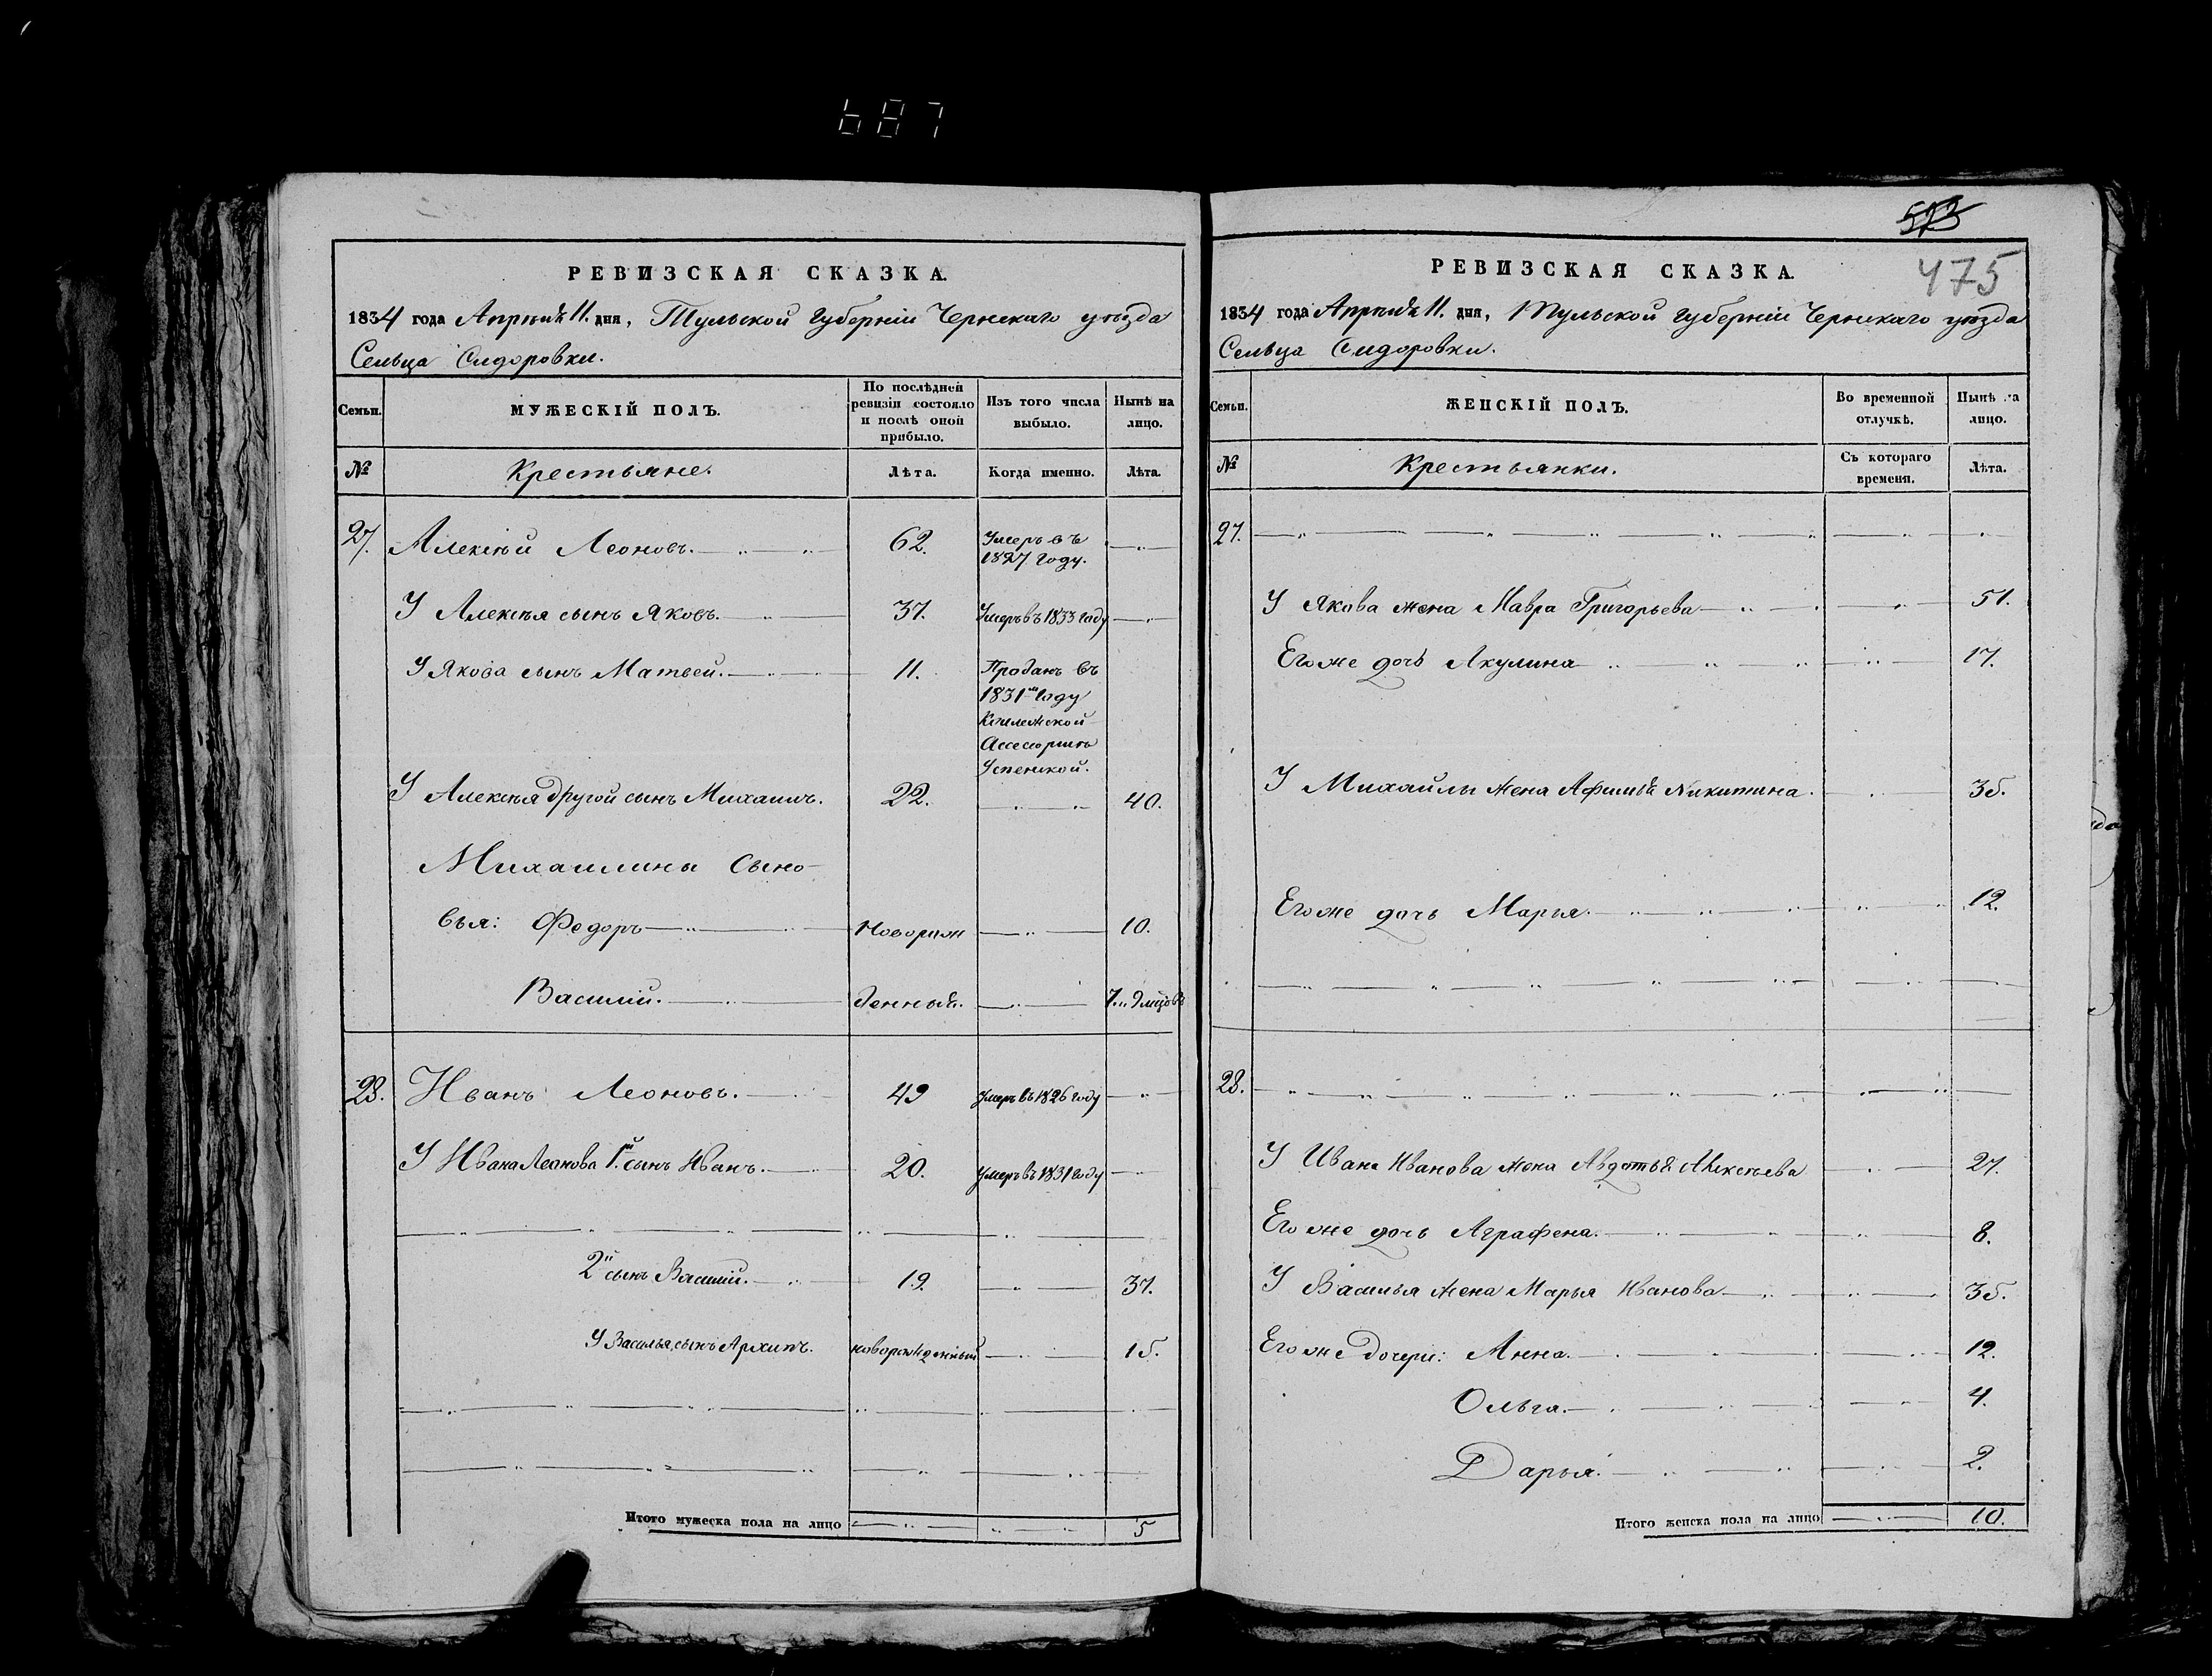 687
РЕВИЗСКАЯ СКАЗКА.
1834 года Апреля 11. дня, Тульской губерніи Чернскаго уѣзда
Сельца Сидоровки.
Семьи.
МУЖЕСКІЙ ПОЛЪ.
По послѣдней ревизіи состояло и послѣ оной прибыло.
Изъ того числа выбыло.
Нынѣ на лицо.
№
Крестьяне.
Лѣта.
Когда именно.
Лѣта.
27. Алексѣй Леоновъ. 62. Умеръ въ 1827 году.
У Алексѣя сынъ Яковъ. 37. Умеръ въ 1833 году
У Якова сынъ Матвей. 11. Проданъ въ
1831м году
Колежской
Ассесоршѣ
Успенской.
У Алексѣя другой сынъ Михаилъ. 22. 40.
Михаилины Сыно-
вья: Федоръ новорож 10.
Василий. денный. 7. и 9 мцовъ
28. Иванъ Леоновъ. 49 Умеръ въ 1826 году
У Ивана Леонова 1й сынъ Иванъ. 20. Умеръ въ 1831 году
2й сынъ Василий. 19. 37.
У Василья, сынъ Архипъ. новорожденный 15.
Итого мужеска пола на лицо 5
523
475
РЕВИЗСКАЯ СКАЗКА.
1834 года Апреля 11. дня, Тульской губерніи Чернскаго уѣзда
Сельца Сидоровки.
Семьи.
ЖЕНСКІЙ ПОЛЪ.
Во временной отлучкѣ.
Нынѣ на лицо.
№
Крестьянки.
Съ котораго времени.
Лѣта.
27.
У Якова жена Мавра Григорьева 51.
Его же дочь Акулина 17.
У Михайлы жена Афимья Никитина. 35.
Его же дочь Марья. 12.
28.
У Ивана Иванова жена Авдотья Алексѣева 27.
Его же дочь Аграфена. 8.
У Василья жена Марья Иванова 35.
Его же дочери: Анна. 12.
Ольга. 4.
Дарья. 2.
Итого женска пола на лицо 10.